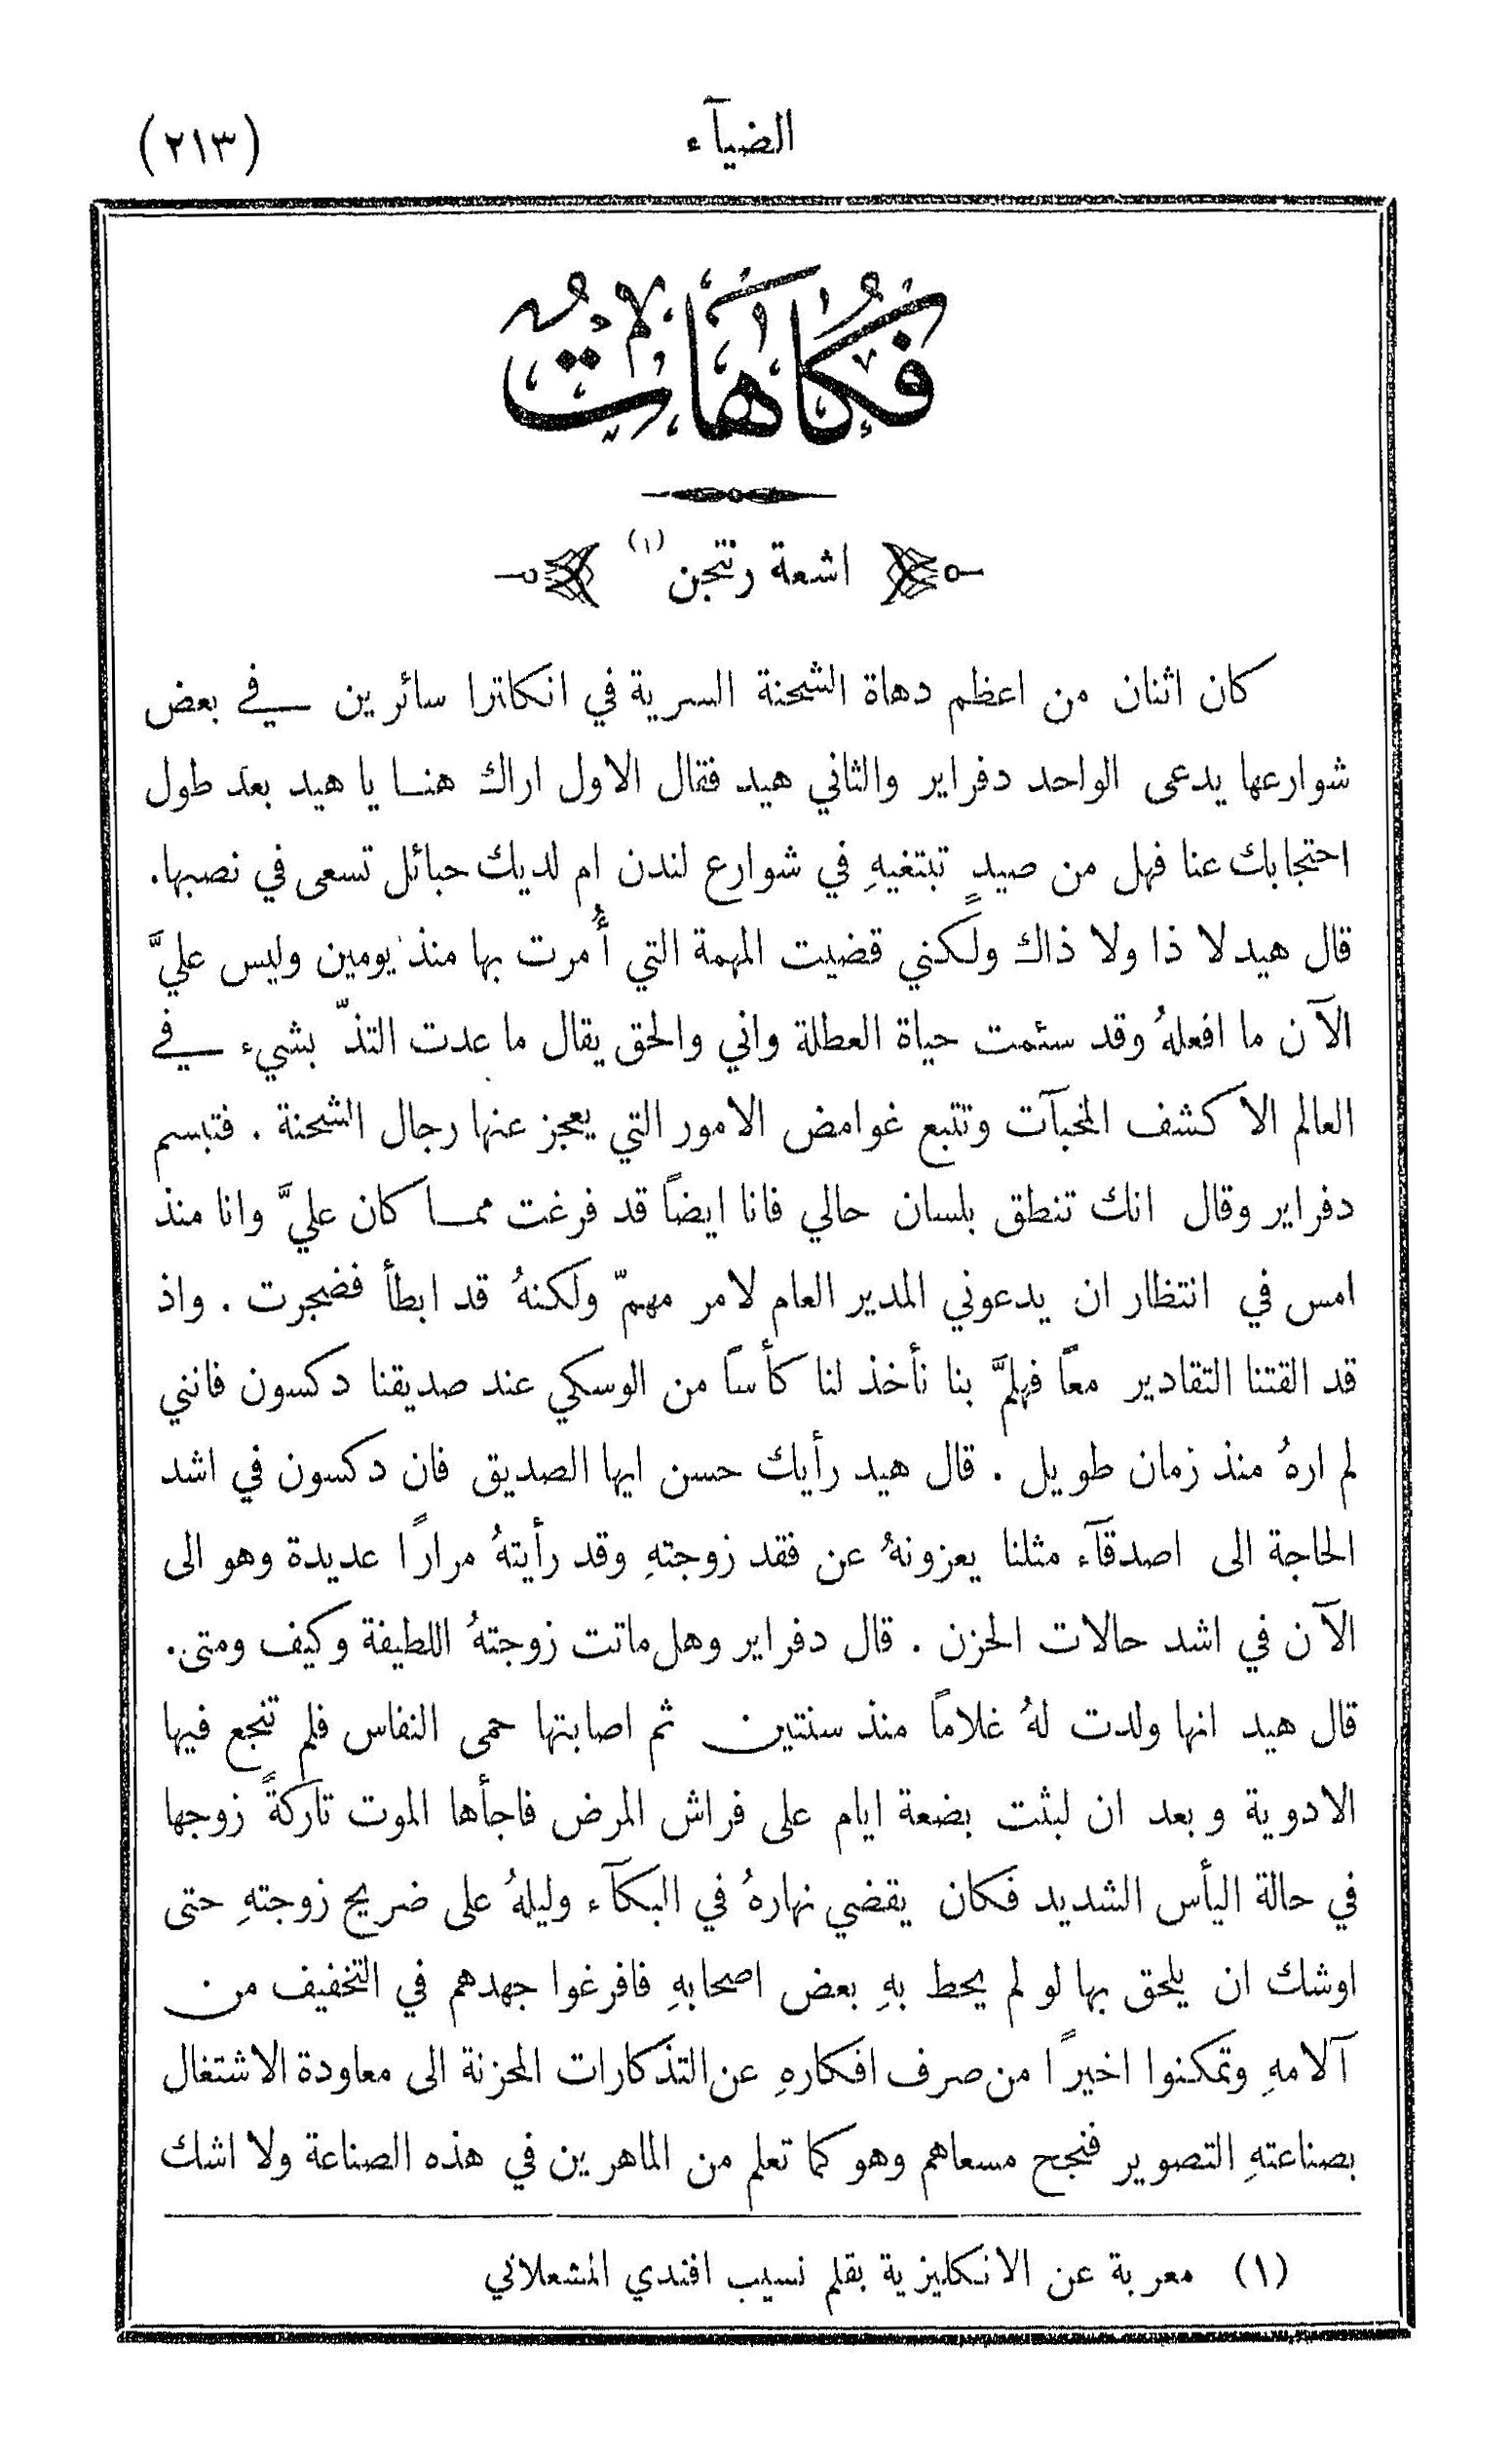 الضيآء
(٢١٣)
فكاهات
اشعة رنتجن (١)
كان اثنان من اعظم دهاة الشحنة السرية في انكلترا سائرين في بعض
شوارعها يدعى الواحد دفراير والثاني هيد فقال الاول اراك هنا يا هيد بعد طول
احتجابك عنا فهل من صيدٍ تبتغيهِ في شوارع لندن ام لديك حبائل تسعى في نصبها.
قال هيد لا ذا ولا ذاك ولكني قضيت المهمة التي أُمرت بها منذ يومين وليس عليَّ
الآن ما افعلهُ وقد سئمت حياة العطلة واني والحق يقال ما عدت التذّ بشيء في
العالم الا كشف المخبآت وتتبع غوامض الامور التي يعجز عنها رجال الشحنة . فتبسم
دفراير وقال انك تنطق بلسان حالي فانا ايضاً قد فرغت مما كان عليَّ وانا منذ
امس في انتظار ان يدعوني المدير العام لامر مهمّ ولكنهُ قد ابطأ فضجرت . واذ
قد القتنا التقادير معاً فهلمَّ بنا نأخذ لنا كأساً من الوسكي عند صديقنا دكسون فانني
لم ارهُ منذ زمان طويل . قال هيد رأيك حسن ايها الصديق فان دكسون في اشد
الحاجة الى اصدقآء مثلنا يعزونهُ عن فقد زوجتهِ وقد رأيتهُ مرارًا عديدة وهو الى
الآن في اشد حالات الحزن . قال دفراير وهل ماتت زوجتهُ اللطيفة وكيف ومتى.
قال هيد انها ولدت لهُ غلاماً منذ سنتين ثم اصابتها حمى النفاس فلم تنجع فيها
الادوية وبعد ان لبثت بضعة ايام على فراش المرض فاجأها الموت تاركةً زوجها
في حالة اليأس الشديد فكان يقضي نهارهُ في البكآء وليلهُ على ضريح زوجتهِ حتى
اوشك ان يلحق بها لو لم يحط بهِ بعض اصحابهِ فافرغوا جهدهم في التخفيف من
آلامهِ وتمكنوا اخيرًا من صرف افكارهِ عن التذكارات المحزنة الى معاودة الاشتغال
بصناعتهِ التصوير فنجح مسعاهم وهو كما تعلم من الماهرين في هذه الصناعة ولا اشك
(١) معربة عن الانكليزية بقلم نسيب افندي المشعلاني